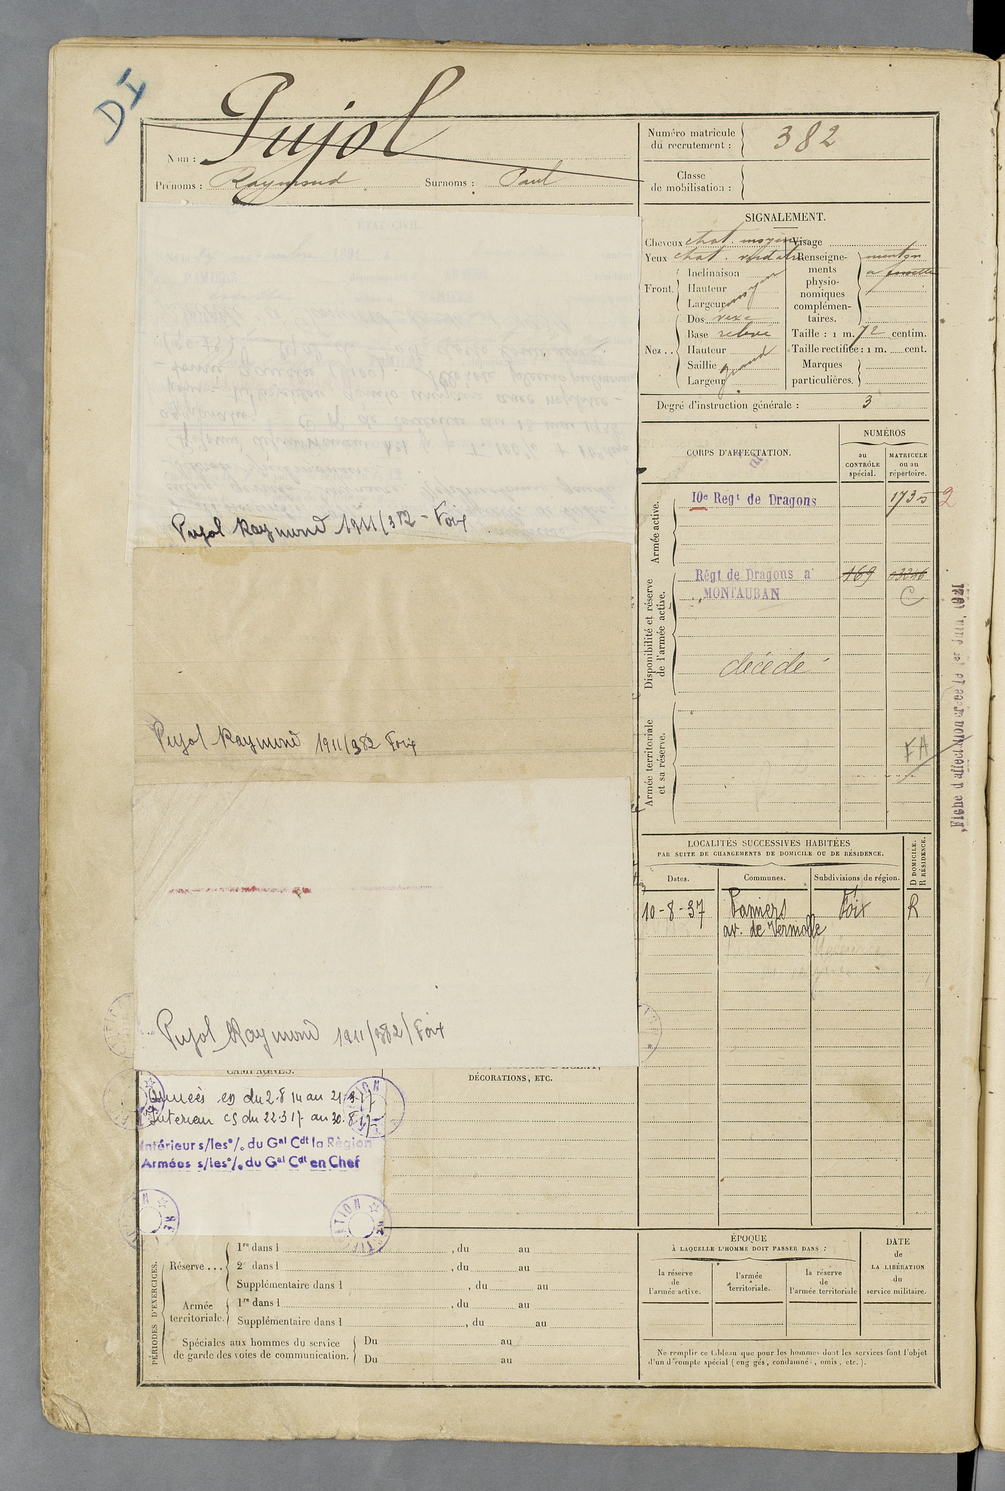 DI
Nom : Pujol
Prénoms : Raymond Surnoms : Paul
Numéro matricule du recrutement : 382
Classe de mobilisation :
Pujol Raymond 1911/382 - Foix
Pujol Raymond 1911/382 Foix
Pujol Raymond 1911/382/Foix
CAMPAGNES.
Armées cd du 2.8 14 au 21.3.17
Intérieur cs du 22.3 17 au 30.8.17
Intérieur s/les °/. du Gal Cdt la Région
Armées s/les °/. du Gal Cdt en Chef
DÉCORATIONS, ETC.
SIGNALEMENT.
Cheveux chat. moyen Visage
Yeux chat. verdatre Renseignements physionomiques complémentaires. menton a fossette
Front. Inclinaison
Hauteur moyen
Largeur
Nez .. Dos vexe
Base relevé Taille : 1 m. 72 centim.
Hauteur Taille rectifiée : 1 m. cent.
Saillie grand Marques particulières.
Largeur
Degré d'instruction générale : 3
CORPS D'AFFECTATION.
NUMÉROS
au CONTRÔLE spécial.
MATRICULE ou au répertoire.
Armée active.
10e Regt de Dragons 1735 2
Disponibilité et réserve de l'armée active.
Régt de Dragons a 169
MONTAUBAN C
décédé
Armée territoriale et sa réserve.
FA
LOCALITÉS SUCCESSIVES HABITÉES
PAR SUITE DE CHANGEMENTS DE DOMICILE OU DE RÉSIDENCE.
Dates. Communes. Subdivisions de région. D DOMICILE. R RÉSIDENCE.
10-8-37 Pamiers Foix R
av. de Vermolle
PÉRIODES D'EXERCICES.
Réserve ... 1re dans l , du au
2e dans l , du au
Supplémentaire dans l , du au
Armée territoriale. 1re dans l , du au
Supplémentaire dans l , du au
Spéciales aux hommes du service de garde des voies de communication. Du au
Du au
ÉPOQUE
À LAQUELLE L'HOMME DOIT PASSER DANS :
la réserve de l'armée active.
l'armée territoriale.
la réserve de l'armée territoriale
DATE de LA LIBÉRATION du service militaire.
Ne remplir ce tableau que pour les hommes dont les services font l'objet
d'un décompte spécial (engagés, condamnés, omis, etc.).